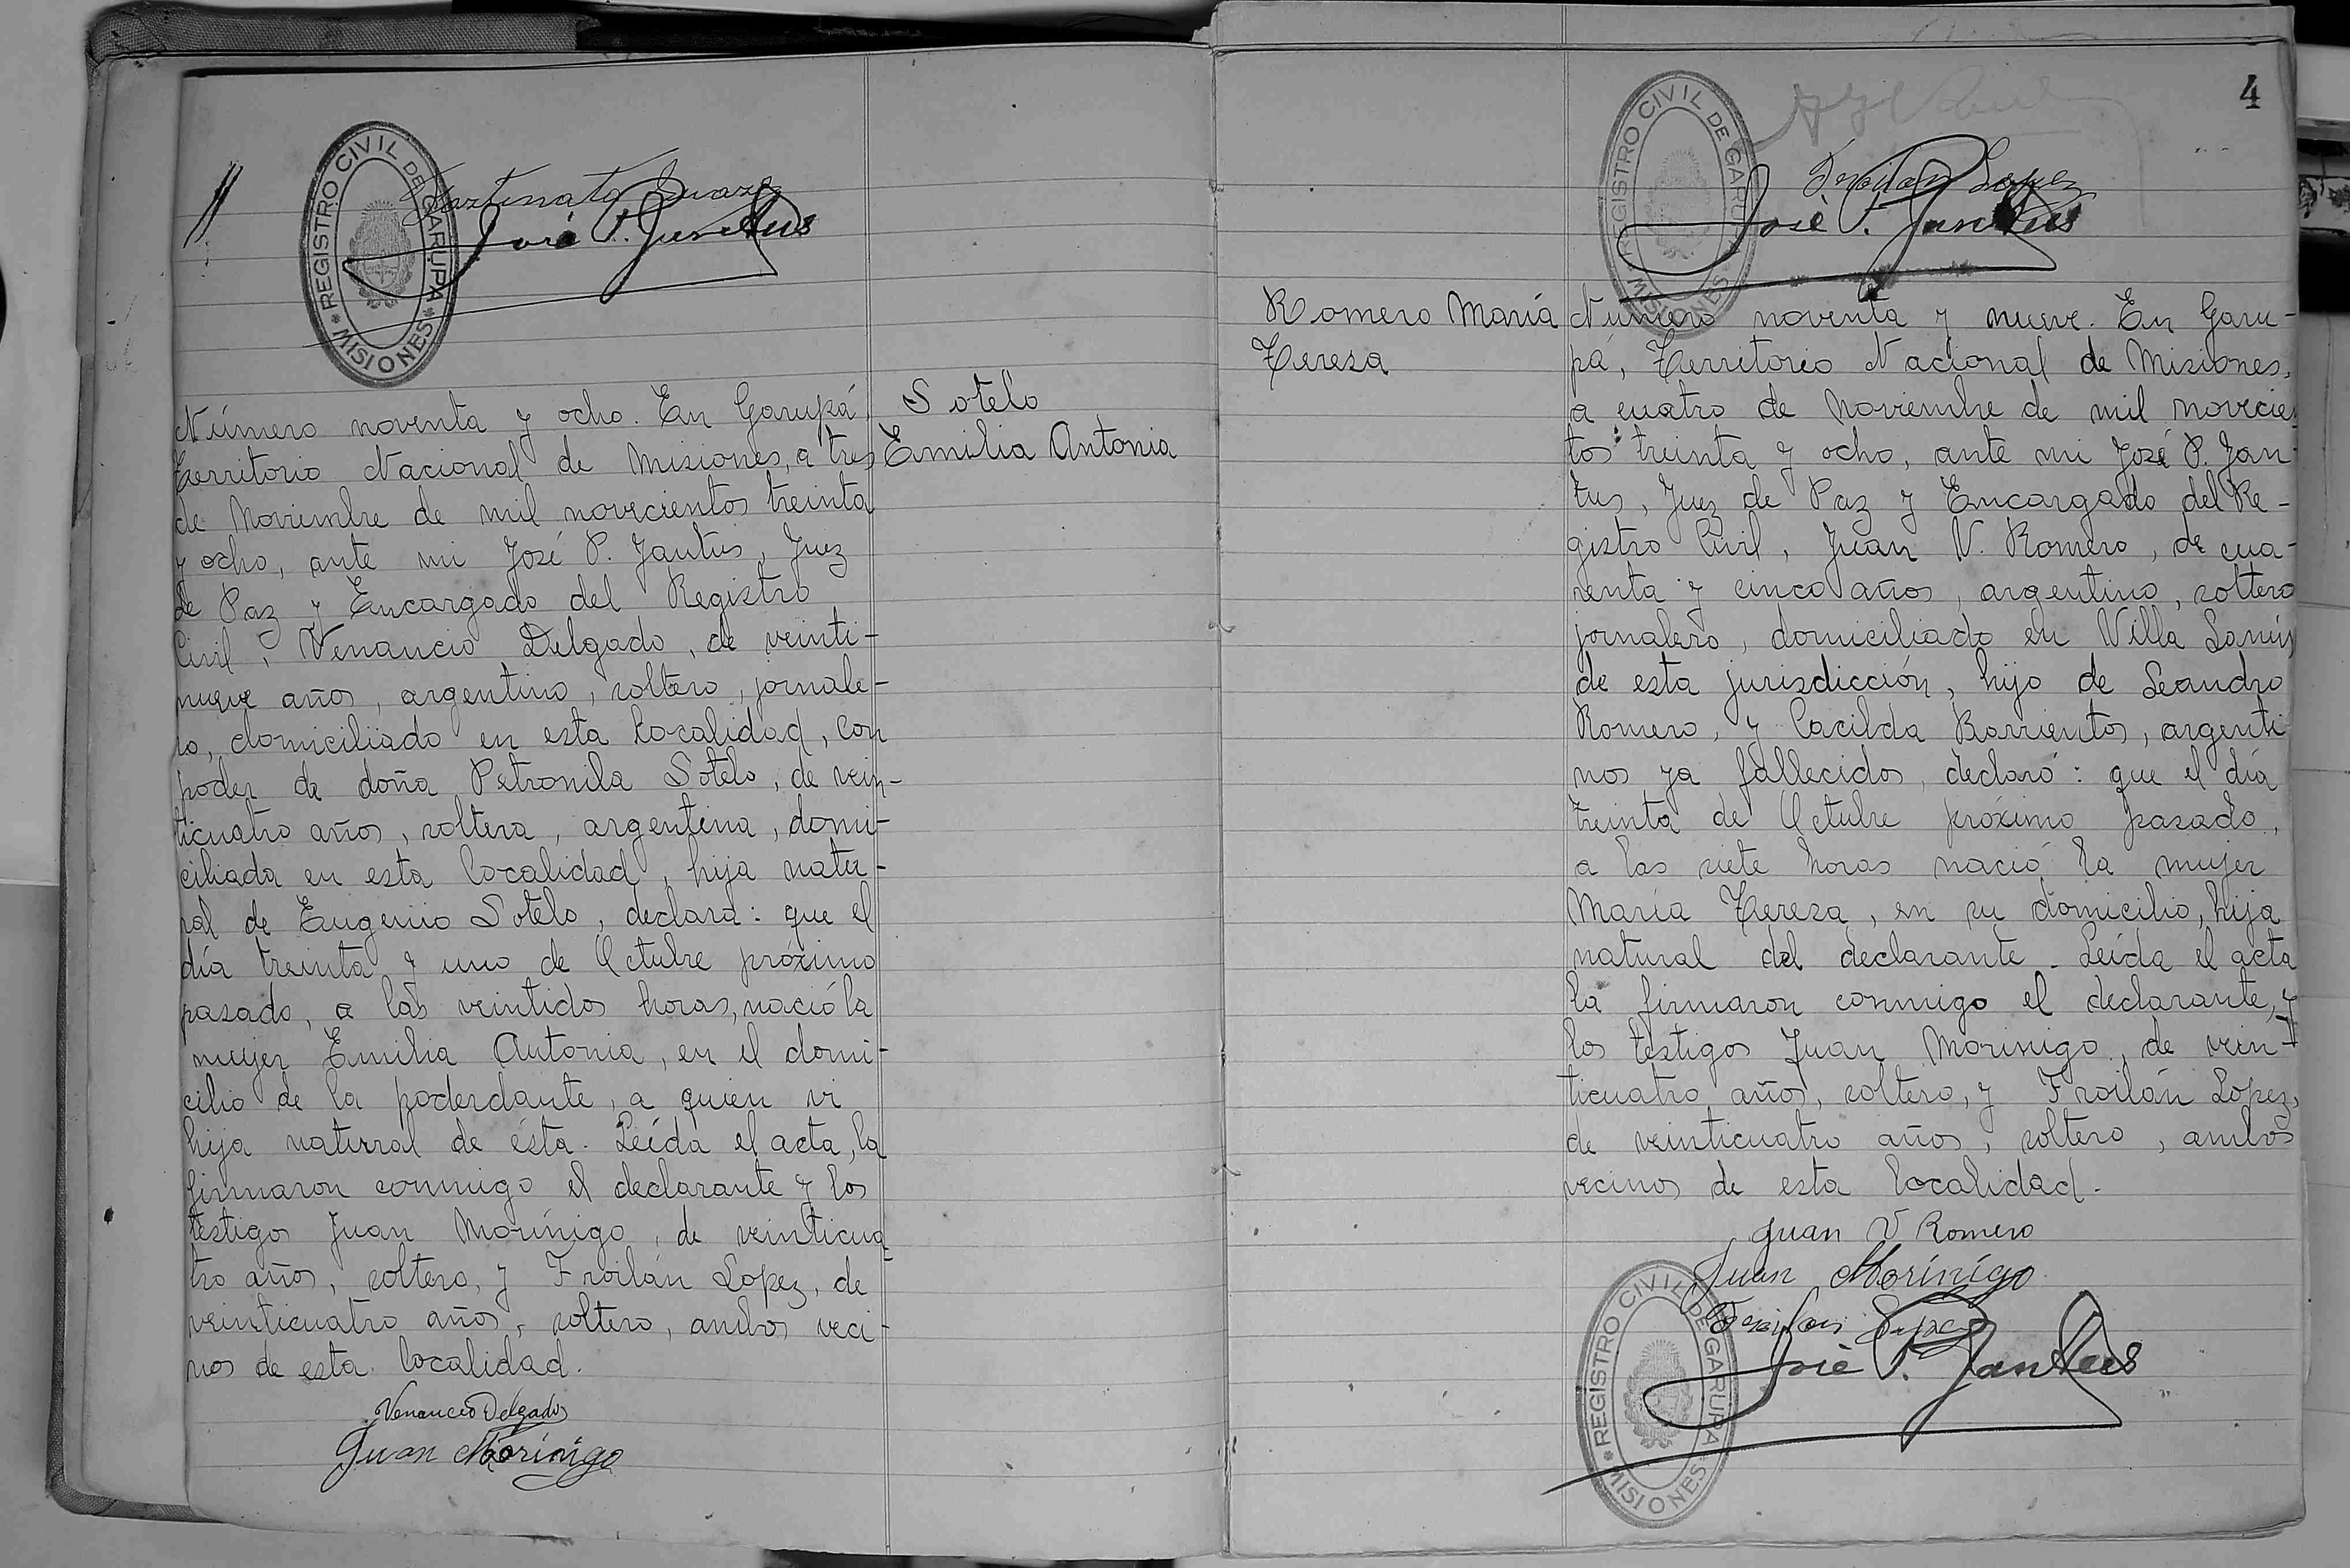 REGISTRO CIVIL DE GARUPA
* MISIONES *
José P. Jantus
Número noventa y ocho. En Garupá,
Territorio Nacional de Misiones, a tres
de Noviembre de mil novecientos treinta
y ocho, ante mi José P. Jantus, Juez
de Paz y Encargado del Registro
Civil, Venancio Delgado, de veinti-
nueve años, argentino, soltero, jornale-
ro, domiciliado en esta localidad, con
poder de doña Petronila Sotelo, de vein-
ticuatro años, soltera, argentina, domi-
ciliada en esta localidad, hija natu-
ral de Eugenio Sotelo, declara: que el
día treinta y uno de Octubre próximo
pasado, a las veintidos horas, nació la
mujer Emilia Antonia, en el domi-
cilio de la poderdante, a quien vi
hija natural de ésta. Leída el acta, la
firmaron conmigo el declarante y los
testigos Juan Morínigo, de veinticua
tro años, soltero, y Froilán Lopez, de
veinticuatro años, soltero, ambos veci-
nos de esta localidad.
Venancio Delgado
Juan Morínigo
Sotelo
Emilia Antonia
4
REGISTRO CIVIL DE GARUPA
MISIONES
Froilan Lopez
José P. Jantus
Romero María
Tereza
Número noventa y nueve. En Garu-
pá, Territorio Nacional de Misiones,
a cuatro de Noviembre de mil novecien
tos treinta y ocho, ante mi José P. Jan-
tus, Juez de Paz y Encargado del Re-
gistro Civil, Juan V. Romero, de cua-
renta y cinco años, argentino, soltero
jornalero, domiciliado en Villa Lanús
de esta jurisdicción, hijo de Leandro
Romero, y Cacilda Barrientos, argenti
nos ya fallecidos, declaró: que el día
treinta de Octubre próximo pasado,
a las siete horas nació la mujer
María Tereza, en su domicilio, hija
natural del declarante. Leída el acta
la firmaron conmigo el declarante, y
los testigos Juan Morinigo, de vein-
ticuatro años, soltero, y Froilán Lopez,
de veinticuatro años, soltero, ambos
vecinos de esta localidad.
Juan V Romero
Juan Morínigo
Froilan Lopez
José P. Jantus
REGISTRO CIVIL DE GARUPA
* MISIONES